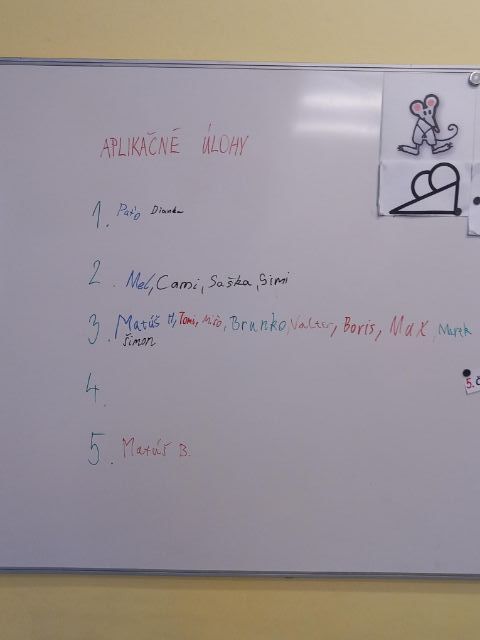 APLIKAČNÉ ÚLOHY
1. Paťo Dianka
2. Mel, Cami, Saška, Simi
3. Matúš H, Tomi, Mišo, Brunko, Valter, Boris, Max, Marek
Šimon
4.
5. Matúš B.
5. Č